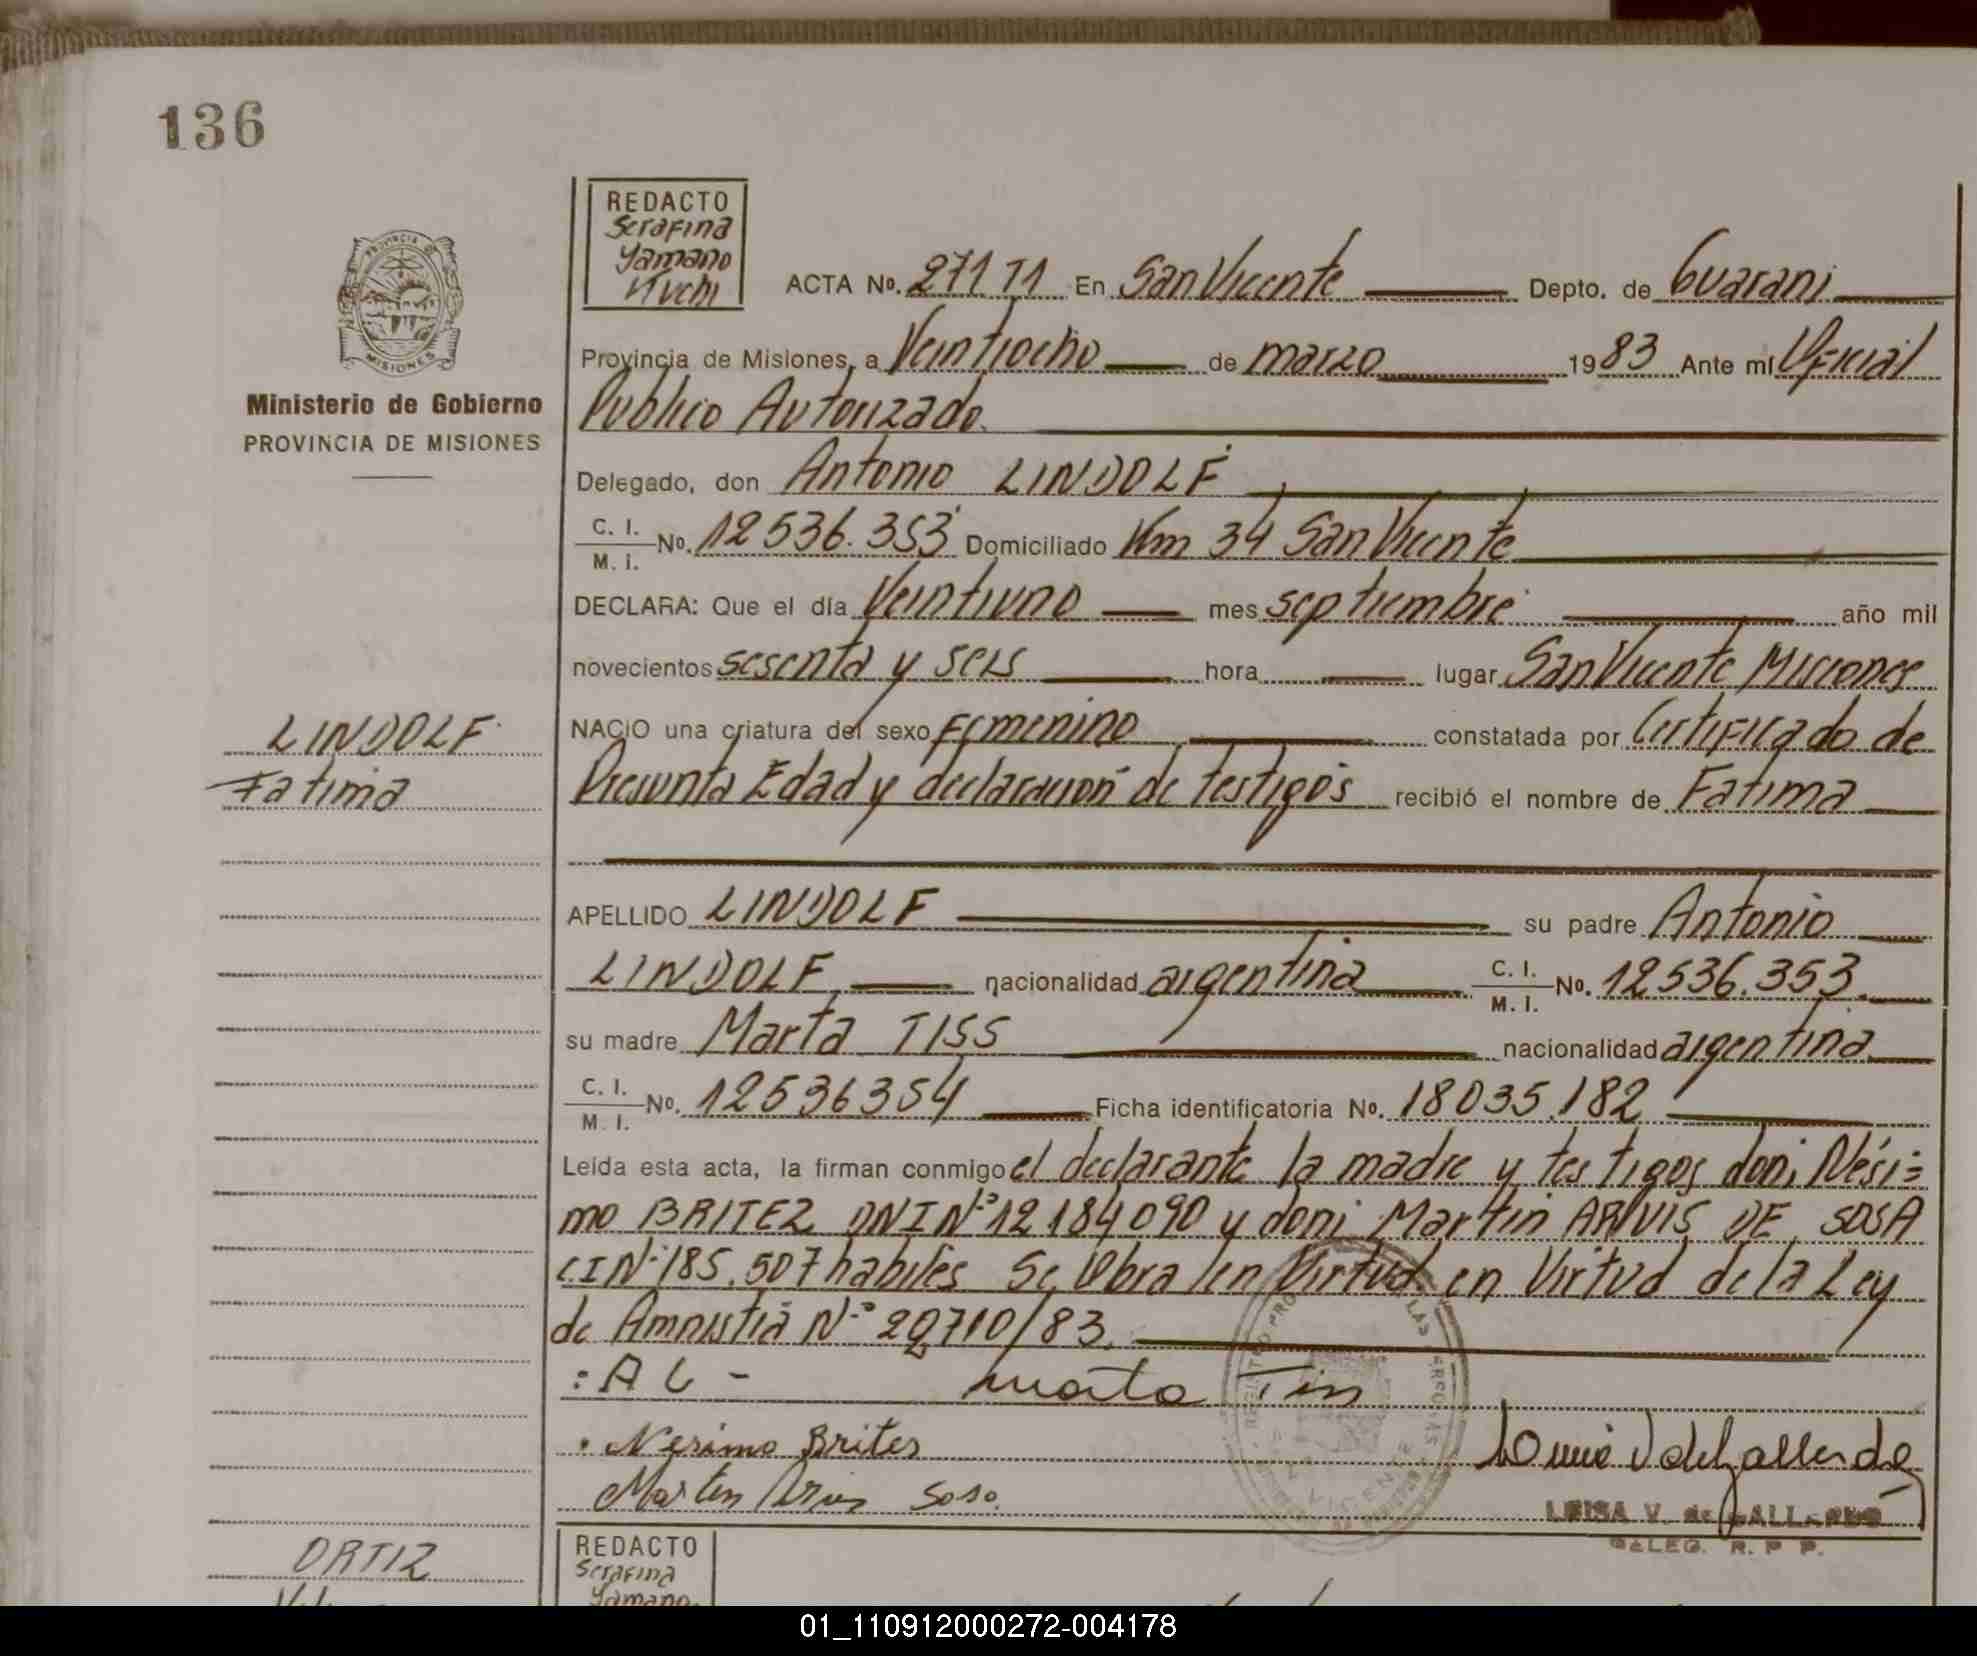 136
REDACTO
Serafina
Yamano
Kuchi
ACTA No. 271 T1 En San Vicente Depto. de Guarani
Provincia de Misiones, a Veintiocho de marzo 1983 Ante mí Oficial
Publico Autorizado.
PROVINCIA DE MISIONES
Ministerio de Gobierno
PROVINCIA DE MISIONES
Delegado, don Antonio LINDOLF
C. I. / M. I. No. 12536.353 Domiciliado Km 34 San Vicente
DECLARA: Que el día Veintiuno mes septiembre año mil
novecientos sesenta y seis hora lugar San Vicente Misiones
LINDOLF
Fatima
NACIO una criatura del sexo Femenino constatada por Certificado de
Presunta Edad y declaración de testigos recibió el nombre de Fatima
APELLIDO LINDOLF su padre Antonio
LINDOLF nacionalidad argentina C. I. / M. I. No. 12536.353.
su madre Marta TISS nacionalidad argentina
C. I. / M. I. No. 12536354 Ficha identificatoria No. 18035.182
Leída esta acta, la firman conmigo el declarante la madre y testigos don: Nési=
mo BRITEZ DNI Nº 12184090 y don: Martin ARVIS DE SOSA
C.I Nº 185.507 habiles Se Obra en Virtud en Virtud de la Ley
de Amnistia Nº 20710/83.
: A L - Marta Tiss
. Nesimo Brites
Marten Arvis Soso.
LEISA V. de GALLARDO
DELEG. R. P P.
ORTIZ
REDACTO
Serafina
Yamano
01_110912000272-004178